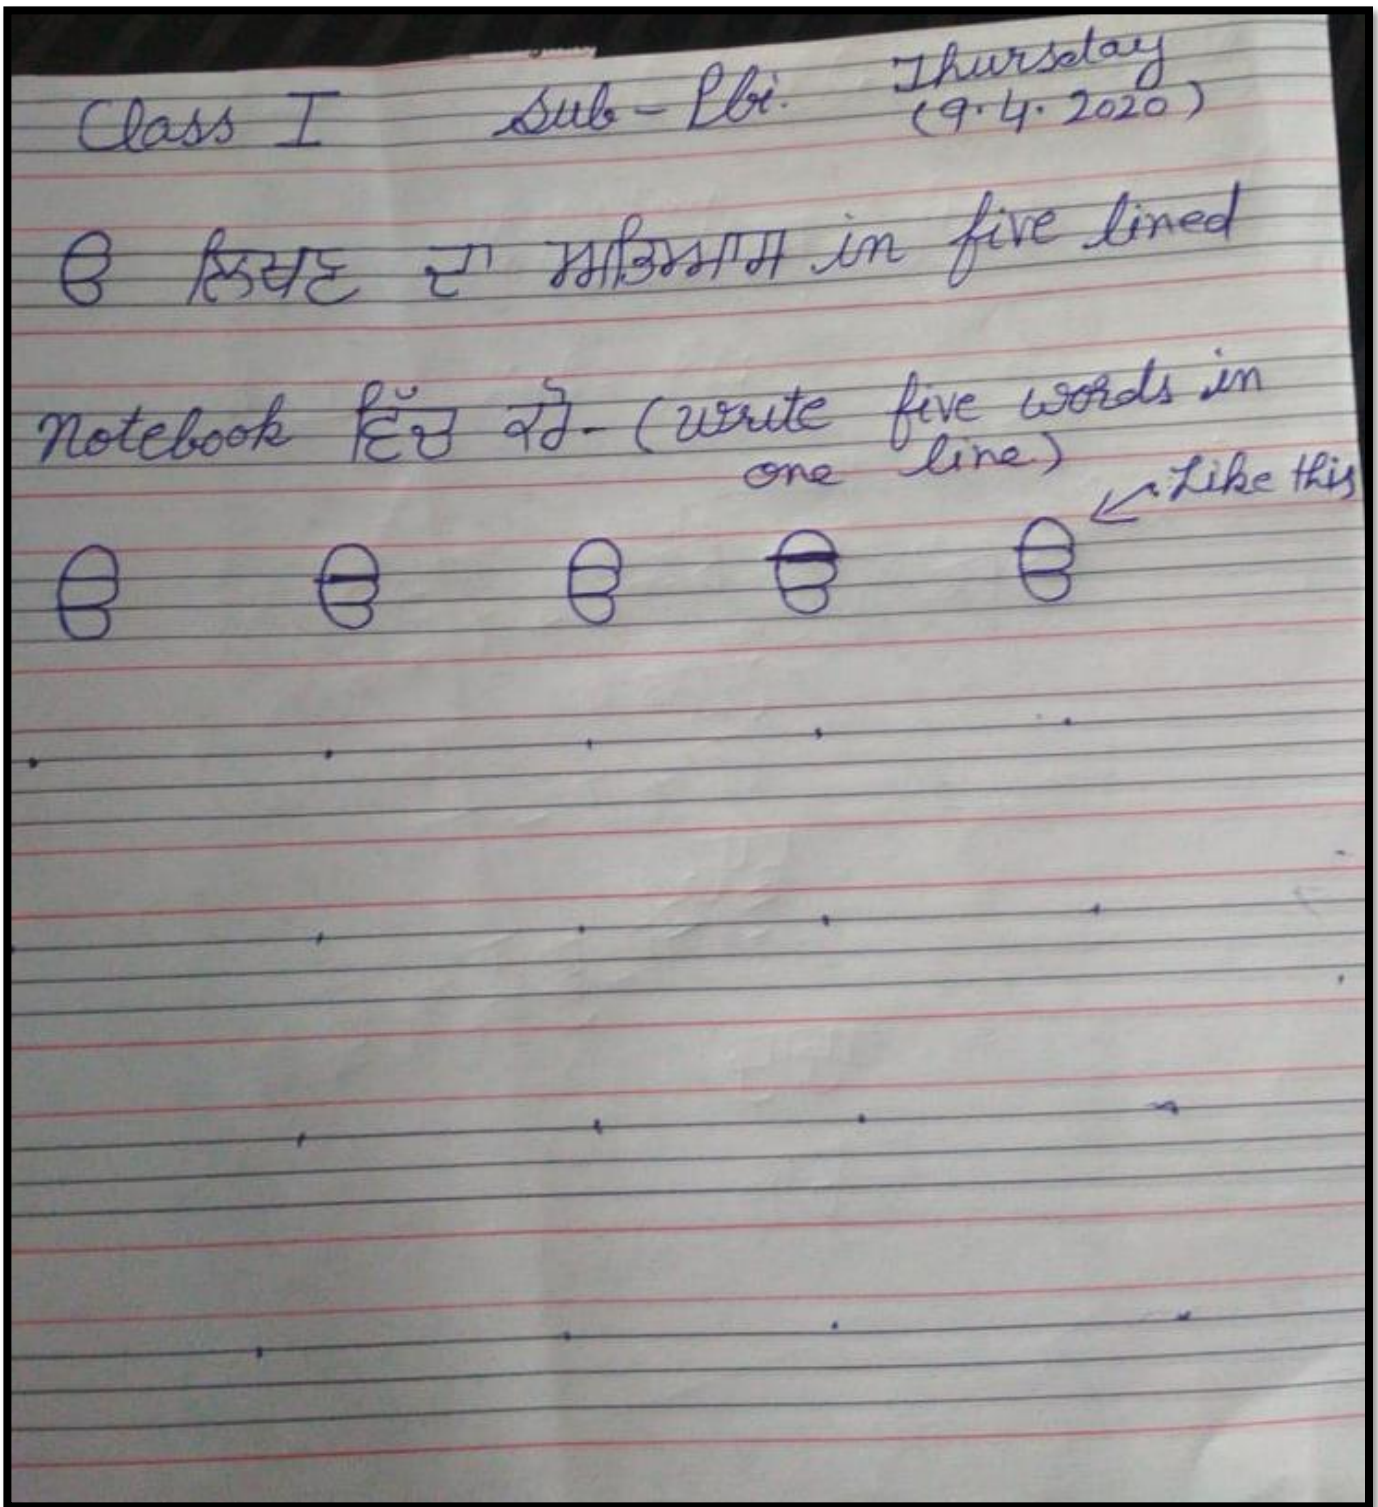 Class I Sub-Pbi. Thursday
(9.4.2020)
ੳ ਲਿਖਣ ਦਾ ਅਭਿਆਸ in five lined
Notebook ਵਿੱਚ ਕਰੋ- (write five words in
one line)
Like this
ੳ ੳ ੳ ੳ ੳ